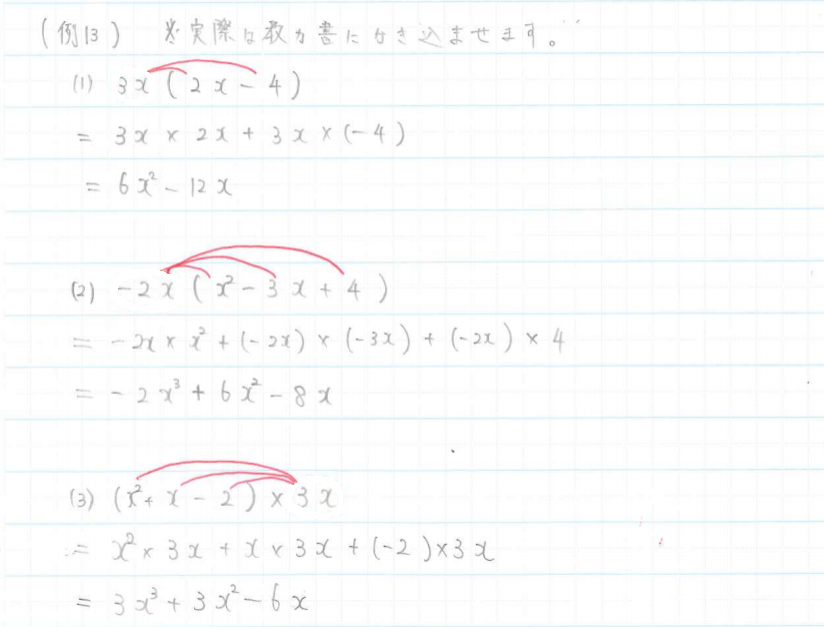 (例13) ※実際は教科書にかき込ませます。
(1) 3x(2x-4)
= 3x × 2x + 3x × (-4)
= 6x² - 12x
(2) -2x(x² - 3x + 4)
= -2x × x² + (-2x) × (-3x) + (-2x) × 4
= -2x³ + 6x² - 8x
(3) (x² + x - 2) × 3x
= x² × 3x + x × 3x + (-2) × 3x
= 3x³ + 3x² - 6x